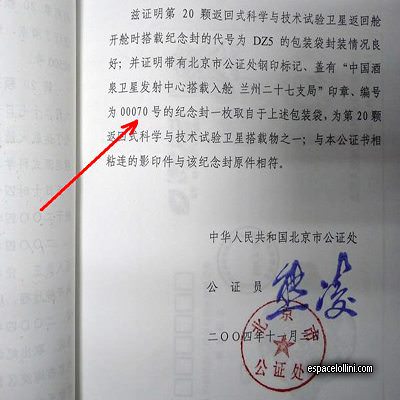 兹证明第 20 颗返回式科学与技术试验卫星返回舱
开舱时搭载纪念封的代号为 DZ5 的包装袋封装情况良
好；并证明带有北京市公证处钢印标记、盖有“中国酒
泉卫星发射中心搭载入舱 兰州二十七支局”印章、编号
为 00070 号的纪念封一枚取自于上述包装袋，为第 20 颗
返回式科学与技术试验卫星搭载物之一；与本公证书相
粘连的影印件与该纪念封原件相符。
中华人民共和国北京市公证处
公 证 员
二〇〇四年十一月三
北京市
公证处
espacelollini.com